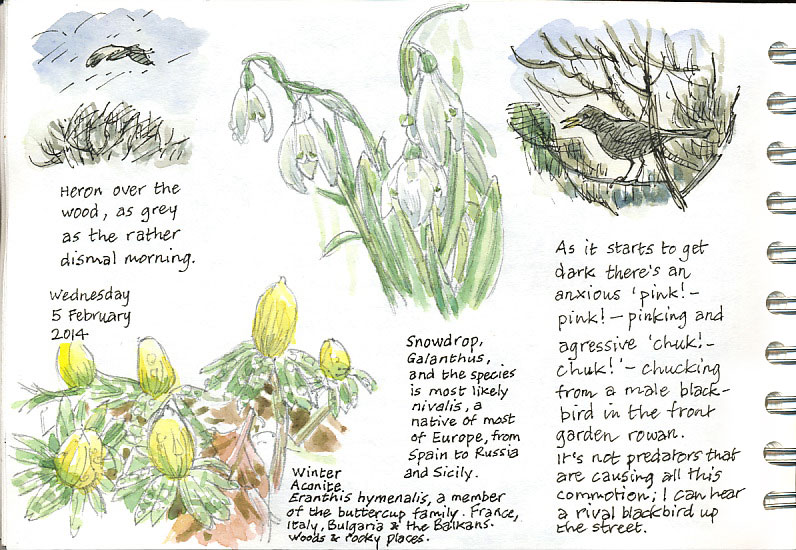 Heron over the
wood, as grey
as the rather
dismal morning.
Wednesday
5 February
2014
Snowdrop,
Galanthus,
and the species
is most likely
nivalis, a
native of most
of Europe, from
Spain to Russia
and Sicily.
Winter
Aconite.
Eranthis hymenalis, a member
of the buttercup family. France,
Italy, Bulgaria & the Balkans.
Woods & rocky places.
As it starts to get
dark there's an
anxious 'pink!-
pink! – pinking and
agressive 'chuk!-
chuk!' – chucking
from a male black-
bird in the front
garden rowan.
It's not predators that
are causing all this
commotion; I can hear
a rival blackbird up
the street.